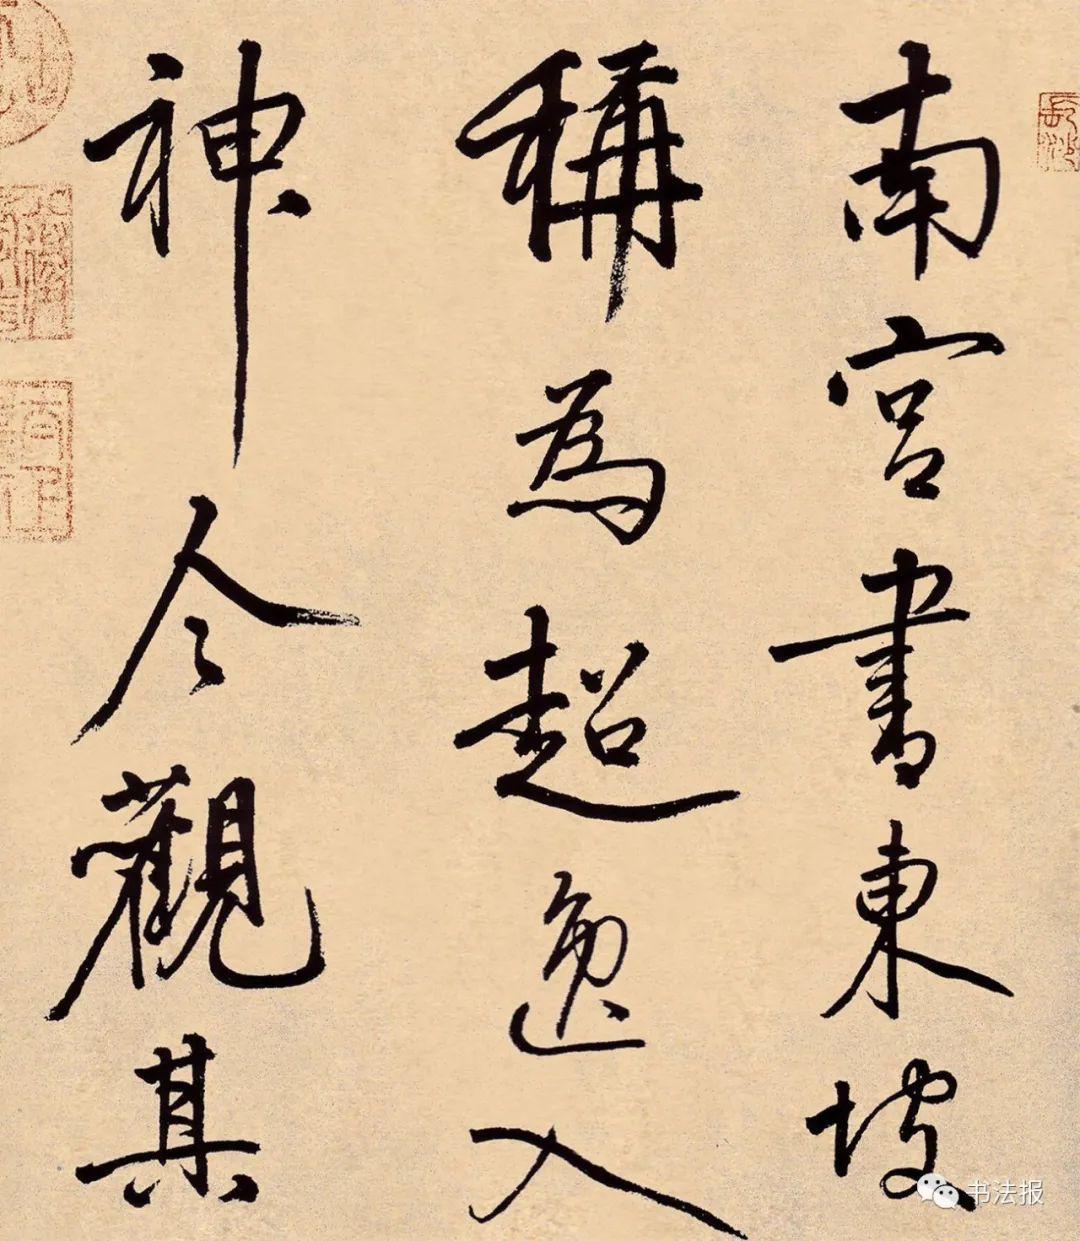 南宫書東坡
稱為超逸入
神今觀其
书法报